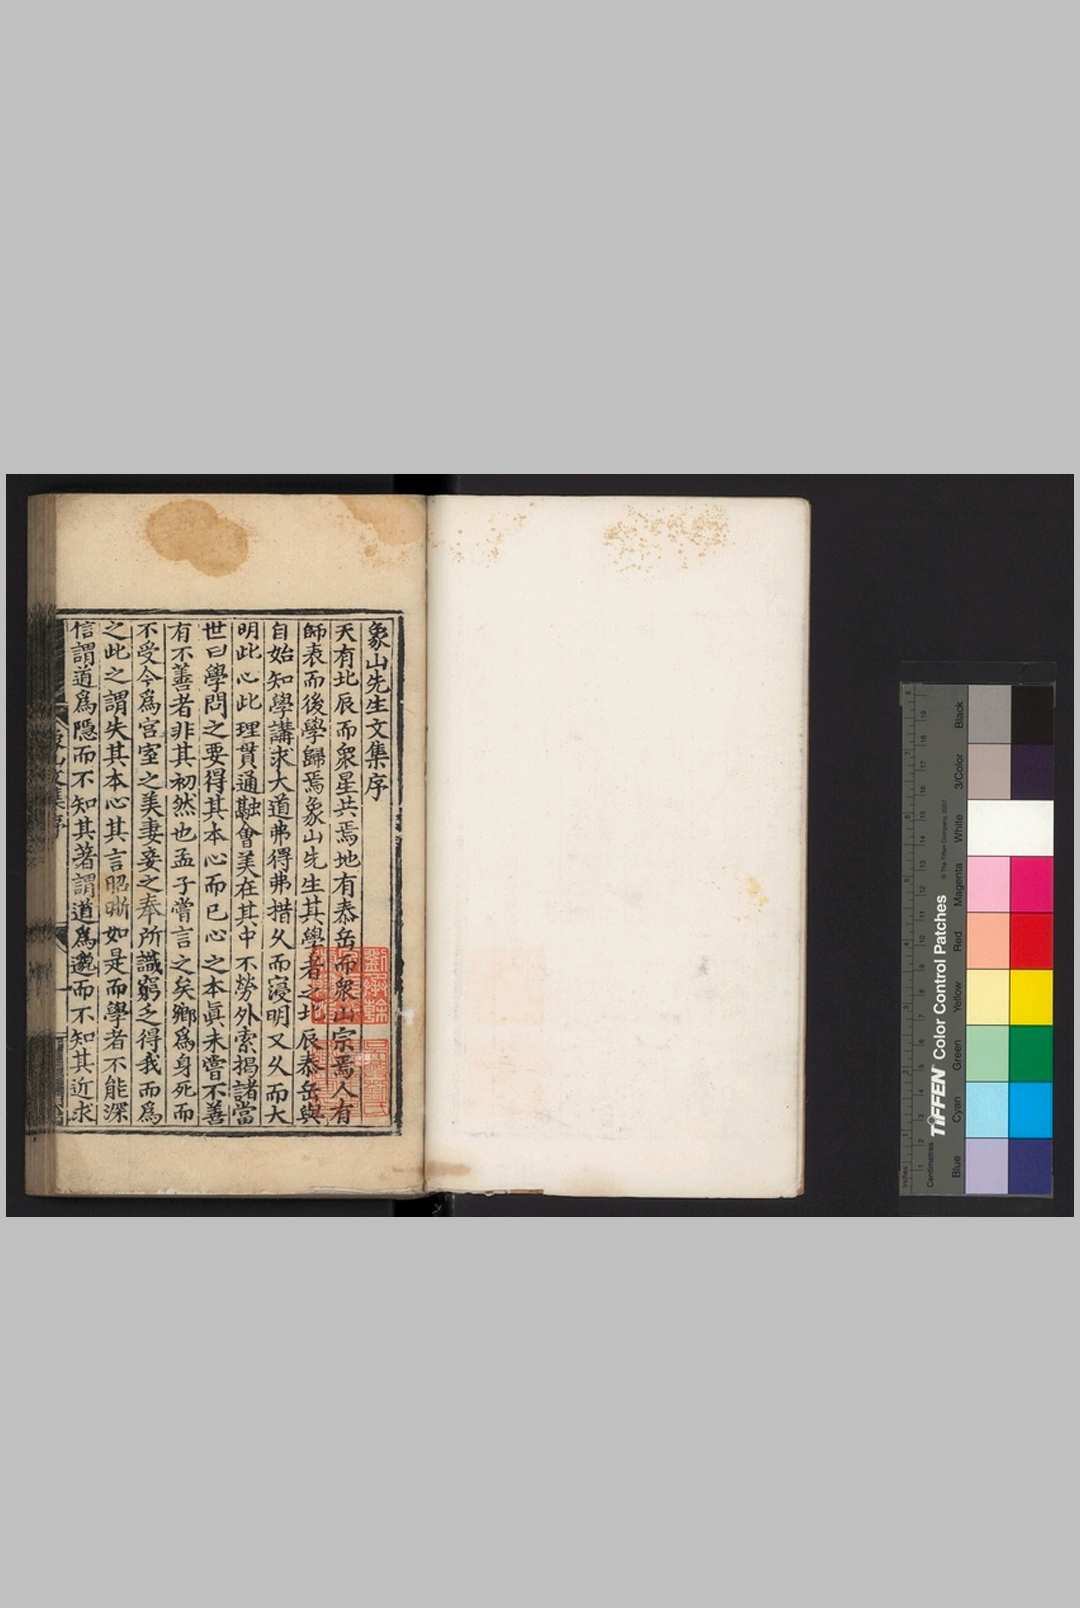 象山先生文集序
天有北辰而衆星共焉地有泰岳而衆山宗焉人有
師表而後學歸焉象山先生其學者之北辰泰岳與
自始知學講求大道弗得弗措久而寖明又久而大
明此心此理貫通融會美在其中不勞外索揭諸當
世曰學問之要得其本心而已心之本眞未嘗不善
有不善者非其初然也孟子嘗言之矣鄉爲身死而
不受今爲宮室之美妻妾之奉所識窮乏得我而爲
之此之謂失其本心其言昭晣如是而學者不能深
信謂道爲隱而不知其著謂道爲邈而不知其近求
TIFFEN Color Control Patches
© The Tiffen Company, 2007
Inches
Centimetres
Blue
Cyan
Green
Yellow
Red
Magenta
White
3/Color
Black